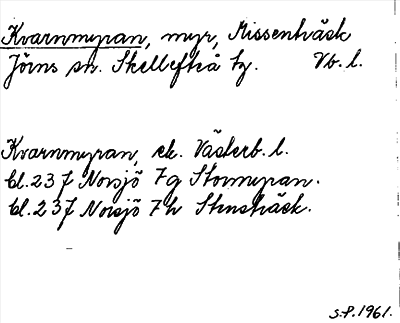 Kvarnmyran, myr, Missenträsk
Jörns sn. Skellefteå tg. Vb. l.
Kvarnmyran, ek. Västerb. l.
bl. 23 J Norsjö 7g Stormyran.
bl. 23 J Norsjö 7h Stensträsk.
S.P. 1961.